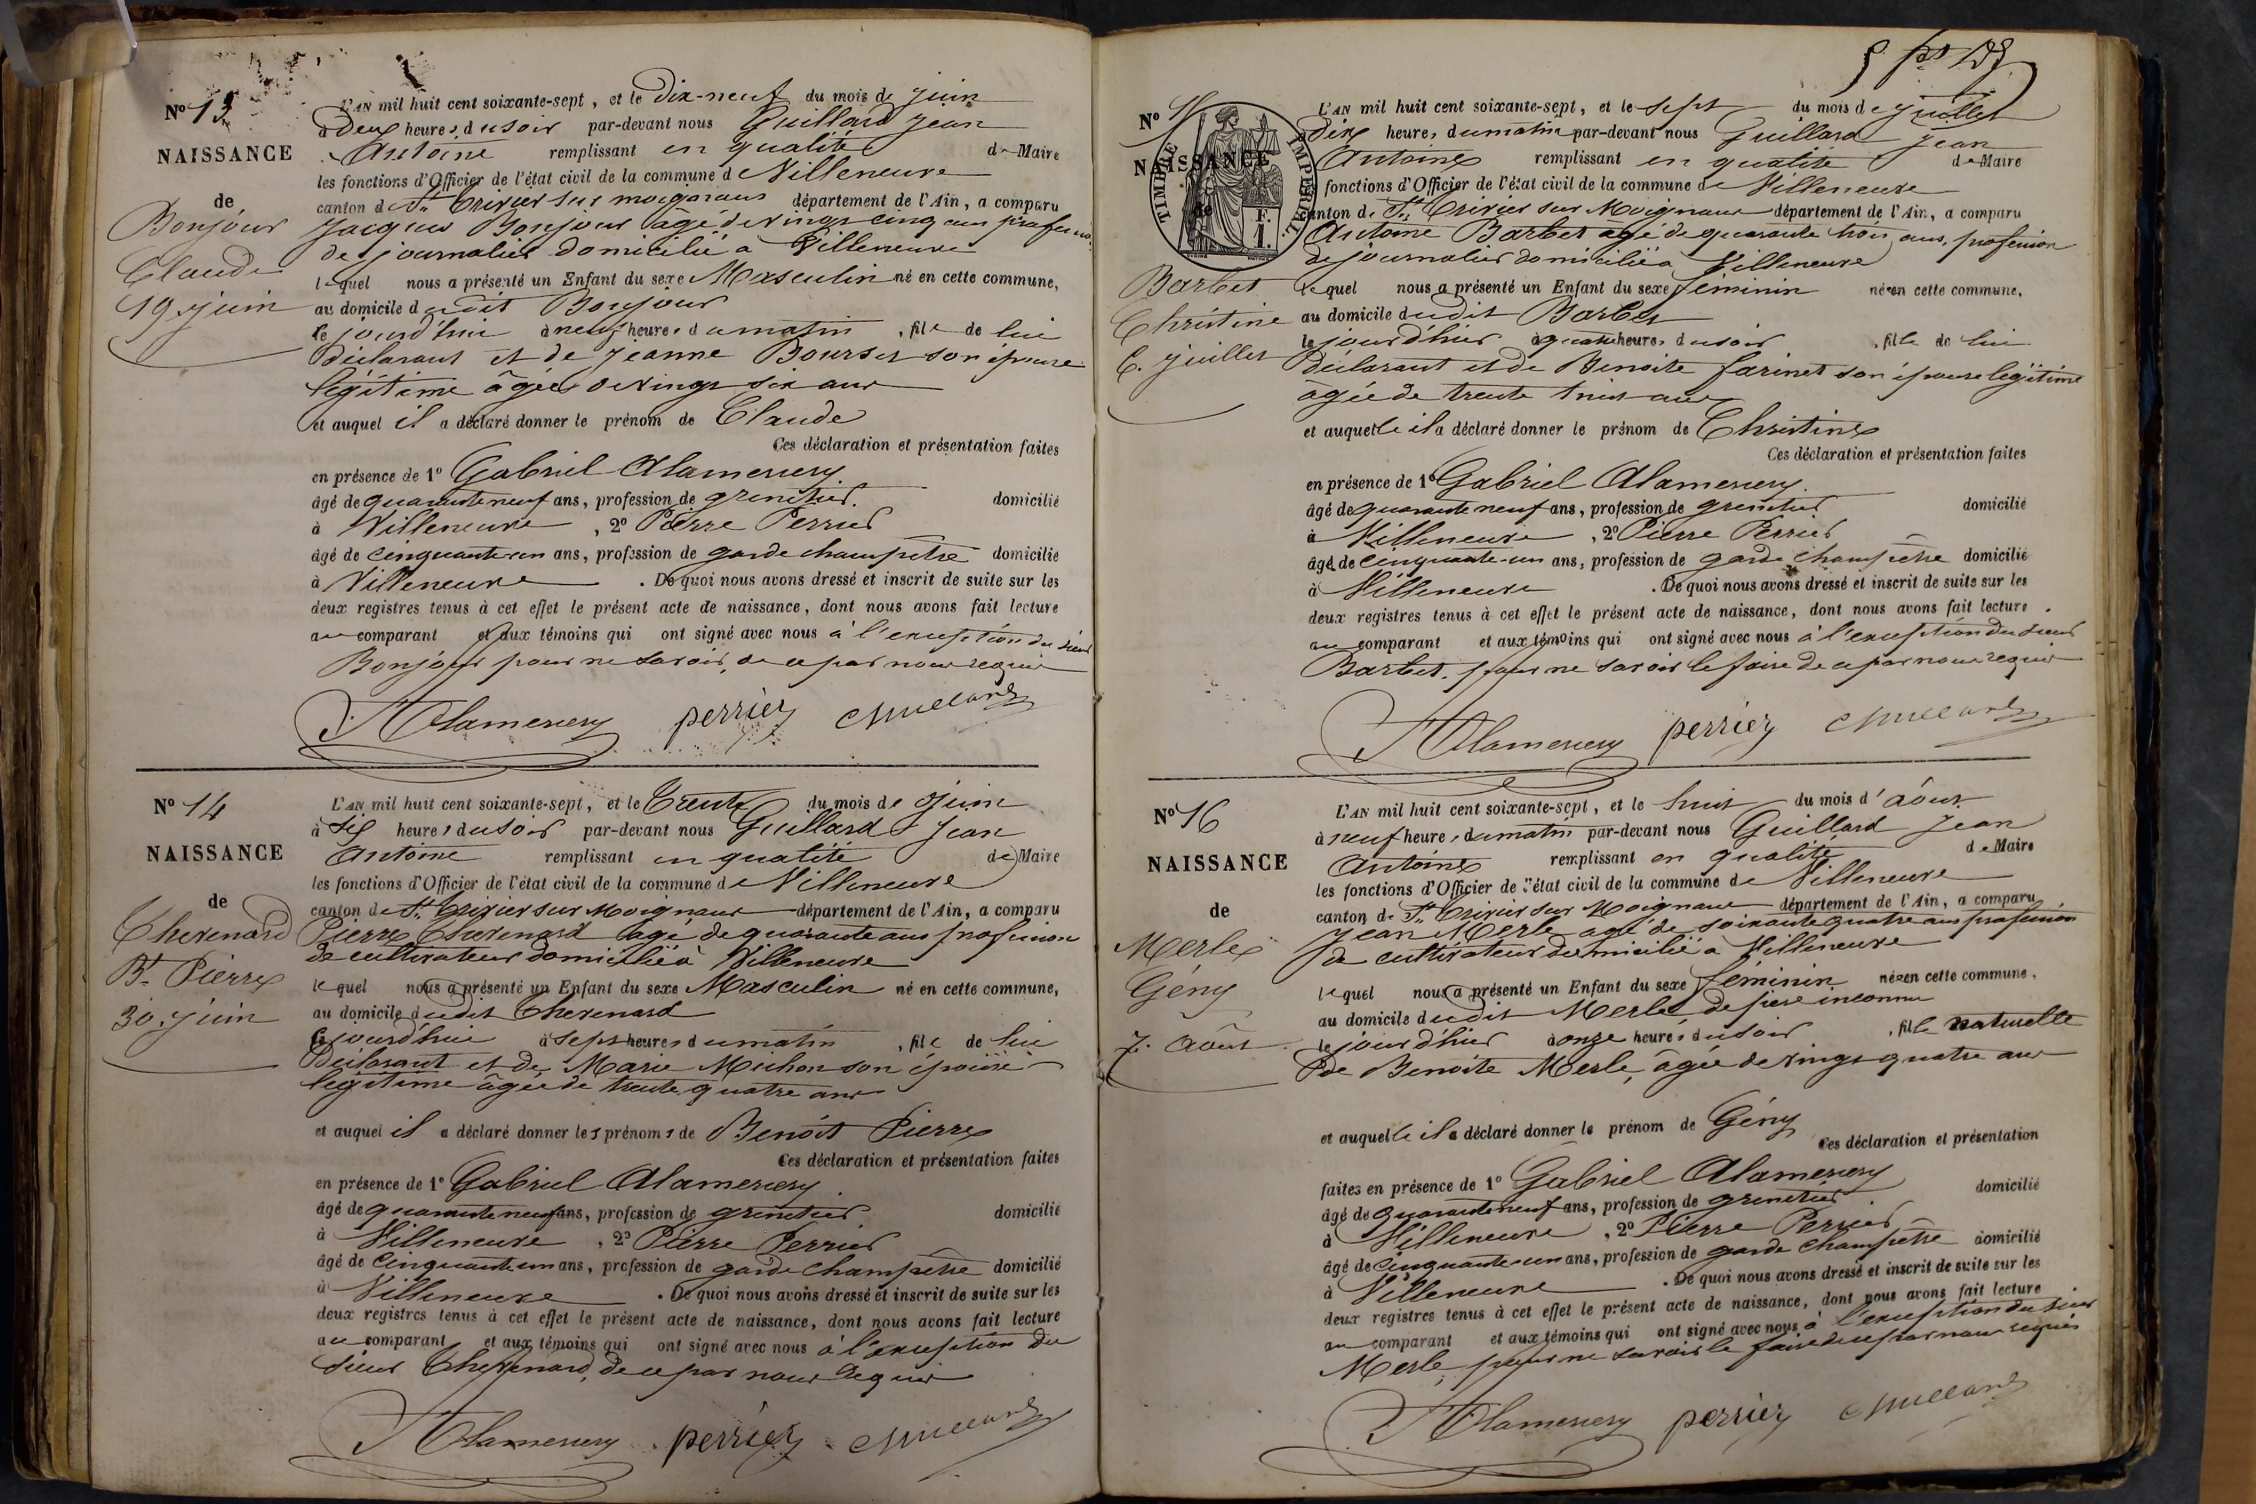 N° 13
NAISSANCE
de
Bonjour
Claude
19. juin
L'AN mil huit cent soixante-sept, et le Dix-neuf du mois de juin
à Deux heures du soir par-devant nous Guillard Jean
Antoine remplissant en qualité de Maire
les fonctions d'Officier de l'état civil de la commune de Villeneuve
canton de St. Trivier sur moignans département de l'Ain, a comparu
Jacques Bonjour âgé de vingt cinq ans profession
de journalier domicilié à Villeneuve
lequel nous a présenté un Enfant du sexe Masculin né en cette commune,
au domicile dudit Bonjour
le jourd'hui à neuf heures du matin, fils de lui
Déclarant et de Jeanne Bourset son épouse
légitime âgée de vingt six ans
et auquel il a déclaré donner le prénom de Claude
Ces déclaration et présentation faites
en présence de 1° Gabriel Alamercery
âgé de quarante neuf ans, profession de grenetier domicilié
à Villeneuve, 2° Pierre Perrier
âgé de cinquante-un ans, profession de garde champêtre domicilié
à Villeneuve. De quoi nous avons dressé et inscrit de suite sur les
deux registres tenus à cet effet le présent acte de naissance, dont nous avons fait lecture
au comparant et aux témoins qui ont signé avec nous à l'exception du sieur
Bonjour pour ne savoir, de ce par nous requis
Alamercery perrier Guillard
N° 14
NAISSANCE
de
Chevenard
Bt. Pierre
30. juin
L'AN mil huit cent soixante-sept, et le Trente du mois de Juin
à six heures du soir par-devant nous Guillard Jean
Antoine remplissant en qualité de Maire
les fonctions d'Officier de l'état civil de la commune de Villeneuve
canton de St. Trivier sur Moignans département de l'Ain, a comparu
Pierre Chevenard âgé de quarante ans profession
de cultivateur domicilié à Villeneuve
lequel nous a présenté un Enfant du sexe Masculin né en cette commune,
au domicile dudit Chevenard
le jourd'hui à sept heures du matin, fils de lui
Déclarant et de Marie Michon son épouse
légitime âgée de trente quatre ans
et auquel il a déclaré donner les prénoms de Benoît Pierre
Ces déclaration et présentation faites
en présence de 1° Gabriel Alamercery
âgé de quarante neuf ans, profession de grenetier domicilié
à Villeneuve, 2° Pierre Perrier
âgé de cinquante un ans, profession de garde champêtre domicilié
à Villeneuve. De quoi nous avons dressé et inscrit de suite sur les
deux registres tenus à cet effet le présent acte de naissance, dont nous avons fait lecture
au comparant et aux témoins qui ont signé avec nous à l'exception du
sieur Chevenard, de ce par nous requis
Alamercery perrier Guillard
N°
NAISSANCE
de
TIMBRE IMPÉRIAL
1 F.
Barbet
Christine
6. juillet
L'AN mil huit cent soixante-sept, et le sept du mois de juillet
Dix heures du matin par-devant nous Guillard Jean
Antoine remplissant en qualité de Maire
fonctions d'Officier de l'état civil de la commune de Villeneuve
canton de St. Trivier sur Moignans département de l'Ain, a comparu
Antoine Barbet âgé de quarante trois ans, profession
de journalier domicilié à Villeneuve
lequel nous a présenté un Enfant du sexe féminin née en cette commune,
au domicile dudit Barbet
le jour d'hier à quatre heures du soir, fille de lui
Déclarant et de Benoite farinet son épouse légitime
âgée de trente trois ans
et auquelle il a déclaré donner le prénom de Christine
Ces déclaration et présentation faites
en présence de 1° Gabriel Alamercery
âgé de quarante neuf ans, profession de grenetier domicilié
à Villeneuve, 2° Pierre Perrier
âgé de cinquante-un ans, profession de garde champêtre domicilié
à Villeneuve. De quoi nous avons dressé et inscrit de suite sur les
deux registres tenus à cet effet le présent acte de naissance, dont nous avons fait lecture
au comparant et aux témoins qui ont signé avec nous à l'exception du sieur
Barbet, pour ne savoir le faire de ce par nous requis
Alamercery perrier Guillard
N° 16
NAISSANCE
de
Merle
Gény
7. Août
L'AN mil huit cent soixante-sept, et le huit du mois d'Août
à neuf heures du matin par-devant nous Guillard Jean
Antoine remplissant en qualité de Maire
les fonctions d'Officier de l'état civil de la commune de Villeneuve
canton de St. Trivier sur Moignans département de l'Ain, a comparu
Jean Merle âgé de soixante quatre ans profession
de cultivateur domicilié à Villeneuve
lequel nous a présenté un Enfant du sexe féminin née en cette commune,
au domicile dudit Merle de père inconnu
le jour d'hier à onze heures du soir, fille naturelle
De Benoite Merle, âgée de vingt quatre ans
et auquelle il a déclaré donner le prénom de Gény
Ces déclaration et présentation
faites en présence de 1° Gabriel Alamercery
âgé de quarante neuf ans, profession de grenetier domicilié
à Villeneuve, 2° Pierre Perrier
âgé de cinquante-un ans, profession de garde champêtre domicilié
à Villeneuve. De quoi nous avons dressé et inscrit de suite sur les
deux registres tenus à cet effet le présent acte de naissance, dont nous avons fait lecture
au comparant et aux témoins qui ont signé avec nous à l'exception du sieur
Merle, pour ne savoir le faire de ce par nous requis
Alamercery perrier Guillard